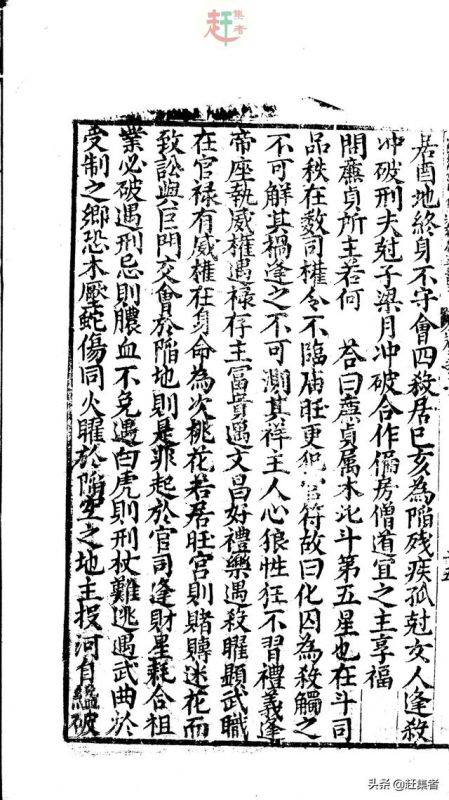 赶集者
居酉地終身不守會四殺居巳亥為陷殘疾孤尅女人逢殺
冲破刑夫尅子梁月冲破合作偏房僧道宜之主享福
問廉貞所主若何 荅曰廉貞属木北斗第五星也在斗司
品秩在数司權令不臨庙旺更犯官符故曰化囚為殺觸之
不可解其禍逢之不可測其祥主人心狼性狂不習禮義逢
帝座執威權遇禄存主富貴遇文昌好禮樂遇殺曜顯武職
在官禄有威權在身命為次桃花若居旺宮則賭賻迷花而
致訟與巨門交會於陷地則是非起於官司逢財星耗合祖
業必破遇刑忌則膿血不免遇白虎則刑杖難逃遇武曲於
受制之鄉恐木壓蛇傷同火曜於陷空之地主投河自縊破
头条 @赶集者